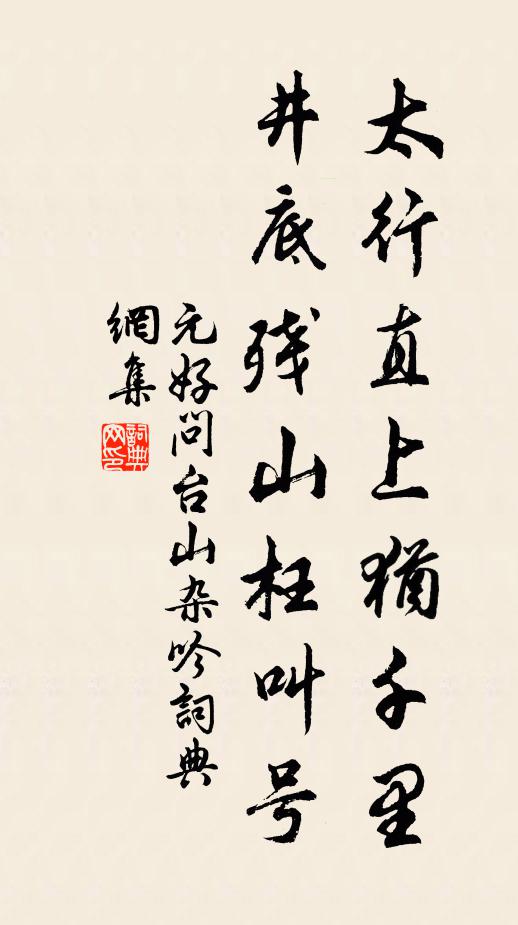 太行直上犹千里
井底残山枉叫号
元好问台山杂吟词典
網集
詞典
网印